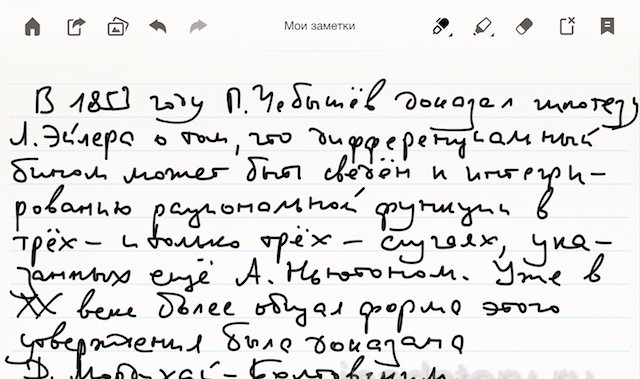 Мои заметки
В 1853 году П. Чебышёв доказал гипотезу
Л. Эйлера о том, что дифференциальный
бином может быть сведён к интегри-
рованию рациональной функции в
трёх – и только трёх – случаях, ука-
занных ещё А. Ньютоном. Уже в
XX веке более общая форма этого
утверждения была доказана
Д. Мордухай-Болтовским